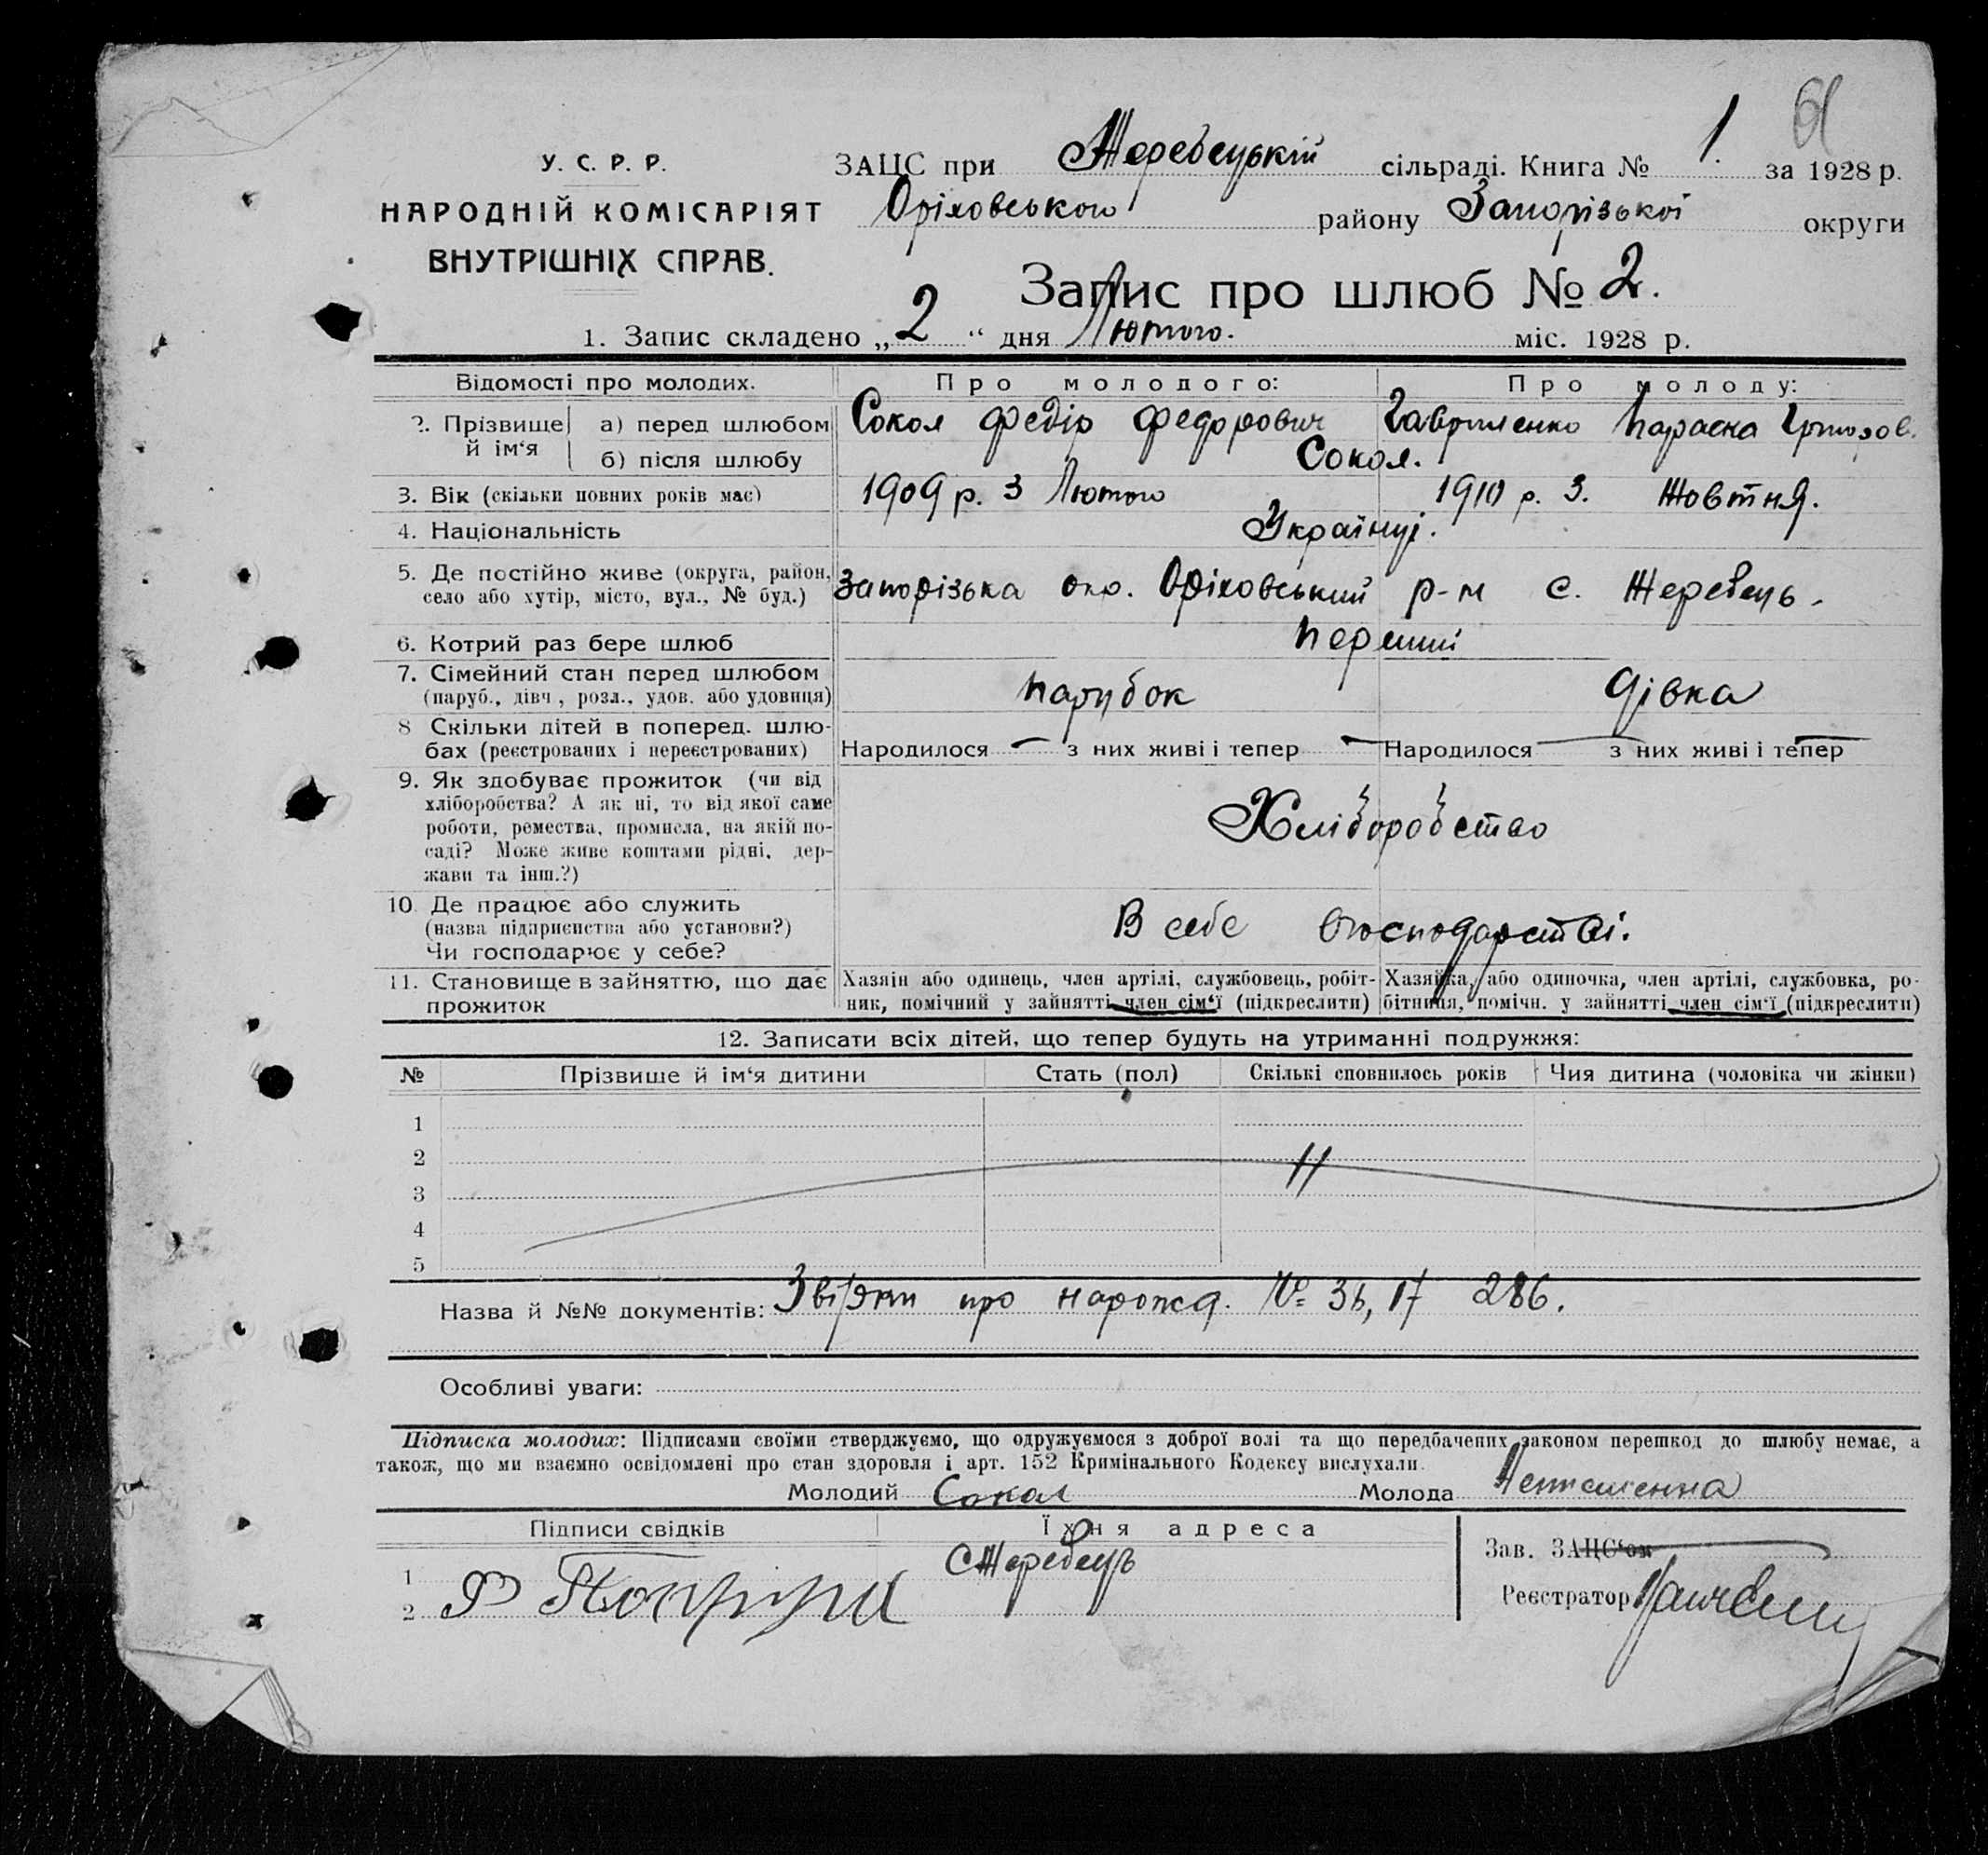 61
У. С. Р. Р.
НАРОДНІЙ КОМІСАРІЯТ
ВНУТРІШНІХ СПРАВ.
ЗАЦС при Жеребецькій сільраді. Книга № 1. за 1928 р.
Оріховського району Запорізької округи
Запис про шлюб № 2.
1. Запис складено „ 2 “ дня Лютого. міс. 1928 р.
Відомості про молодих. Про молодого: Про молоду:
2. Прізвище й ім‘я а) перед шлюбом Сокол Федір Федорович Гавриленко Параска
б) після шлюбу Сокол.
3. Вік (скільки повних років має) 1909 р. 3 Лютого 1910 р. 3. Жовтня.
4. Національність Українці.
5. Де постійно живе (округа, район, Запорізька окр. Оріховський р-н с. Жеребець.
село або хутір, місто, вул., № буд.)
6. Котрий раз бере шлюб перший
7. Сімейний стан перед шлюбом парубок дівка
(паруб., дівч., розл., удов. або удовиця)
8 Скільки дітей в поперед. шлю-
бах (реєстрованих і нереєстрованих) Народилося — з них живі і тепер — Народилося — з них живі і тепер —
9. Як здобуває прожиток (чи від
хліборобства? А як ні, то від якої саме
роботи, ремества, промисла, на якій по- Хліборобство
саді? Може живе коштами рідні, дер-
жави та інш.?)
10. Де працює або служить
(назва підприємства або установи?) В себе господарстві.
Чи господарює у себе?
11. Становище в зайняттю, що дає Хазяїн або одинець, член артілі, службовець, робіт- Хазяйка, або одиночка, член артілі, службовка, ро-
прожиток ник, помічний у зайнятті член сім‘ї (підкреслити) бітниця, помічн. у зайнятті член сім‘ї (підкреслити)
12. Записати всіх дітей, що тепер будуть на утриманні подружжя:
№ Прізвище й ім‘я дитини Стать (пол) Скількі сповнилось років Чия дитина (чоловіка чи жінки)
1
2
3
4
5
Назва й №№ документів: про нарожд. № 286.
Особливі уваги:
Підписка молодих: Підписами своїми стверджуємо, що одружуємося з доброї волі та що передбачених законом перешкод до шлюбу немає, а
також, що ми взаємно освідомлені про стан здоровля і арт. 152 Кримінального Кодексу вислухали.
Молодий Сокол Молода
Підписи свідків Їхня адреса
Зав. ЗАЦС‘ом
1 С Жеребець
2 Ф
Реєстратор